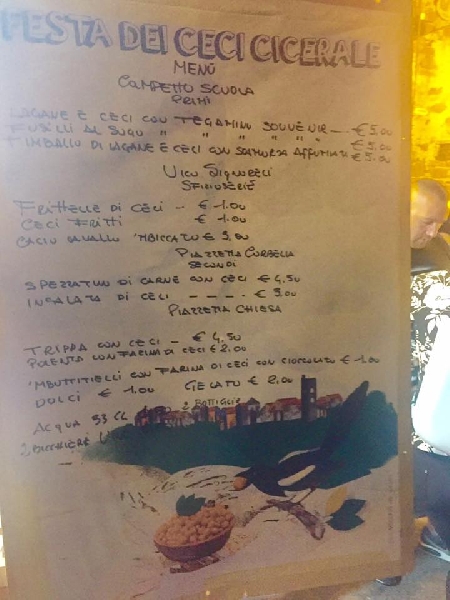 FESTA DEI CECI CICERALE
MENÙ
CAMPETTO SCUOLA
PRIMI
LAGANE E CECI CON TEGAMINO SOUVENIR --- € 5,00
FUSILLI AL SUGO " " " " € 5,00
TIMBALLO DI LAGANE E CECI CON SCAMORZA AFFUMICATA € 5,00
VICO SIGNORELI
SFIZIOSERIE
FRITTELLE DI CECI - € 1.00
CECI FRITTI € 1.00
CACIO CAVALLO 'MBICCATO €
PIAZZETTA CORBELLA
SECONDI
SPEZZATINO DI CARNE CON CECI € 4,50
INSALATA DI CECI ---- € 3,00
PIAZZETTA CHIESA
TRIPPA CON CECI - € 4,50
POLENTA CON FARINA DI CECI € 2,00
'MBUTTITIELLI CON FARINA DI CECI CON CIOCCOLATO € 1.00
DOLCI € 1.00 GELATO € 2,00
ACQUA 33 CL
2 BOTTIGLIE
BICCHIERE